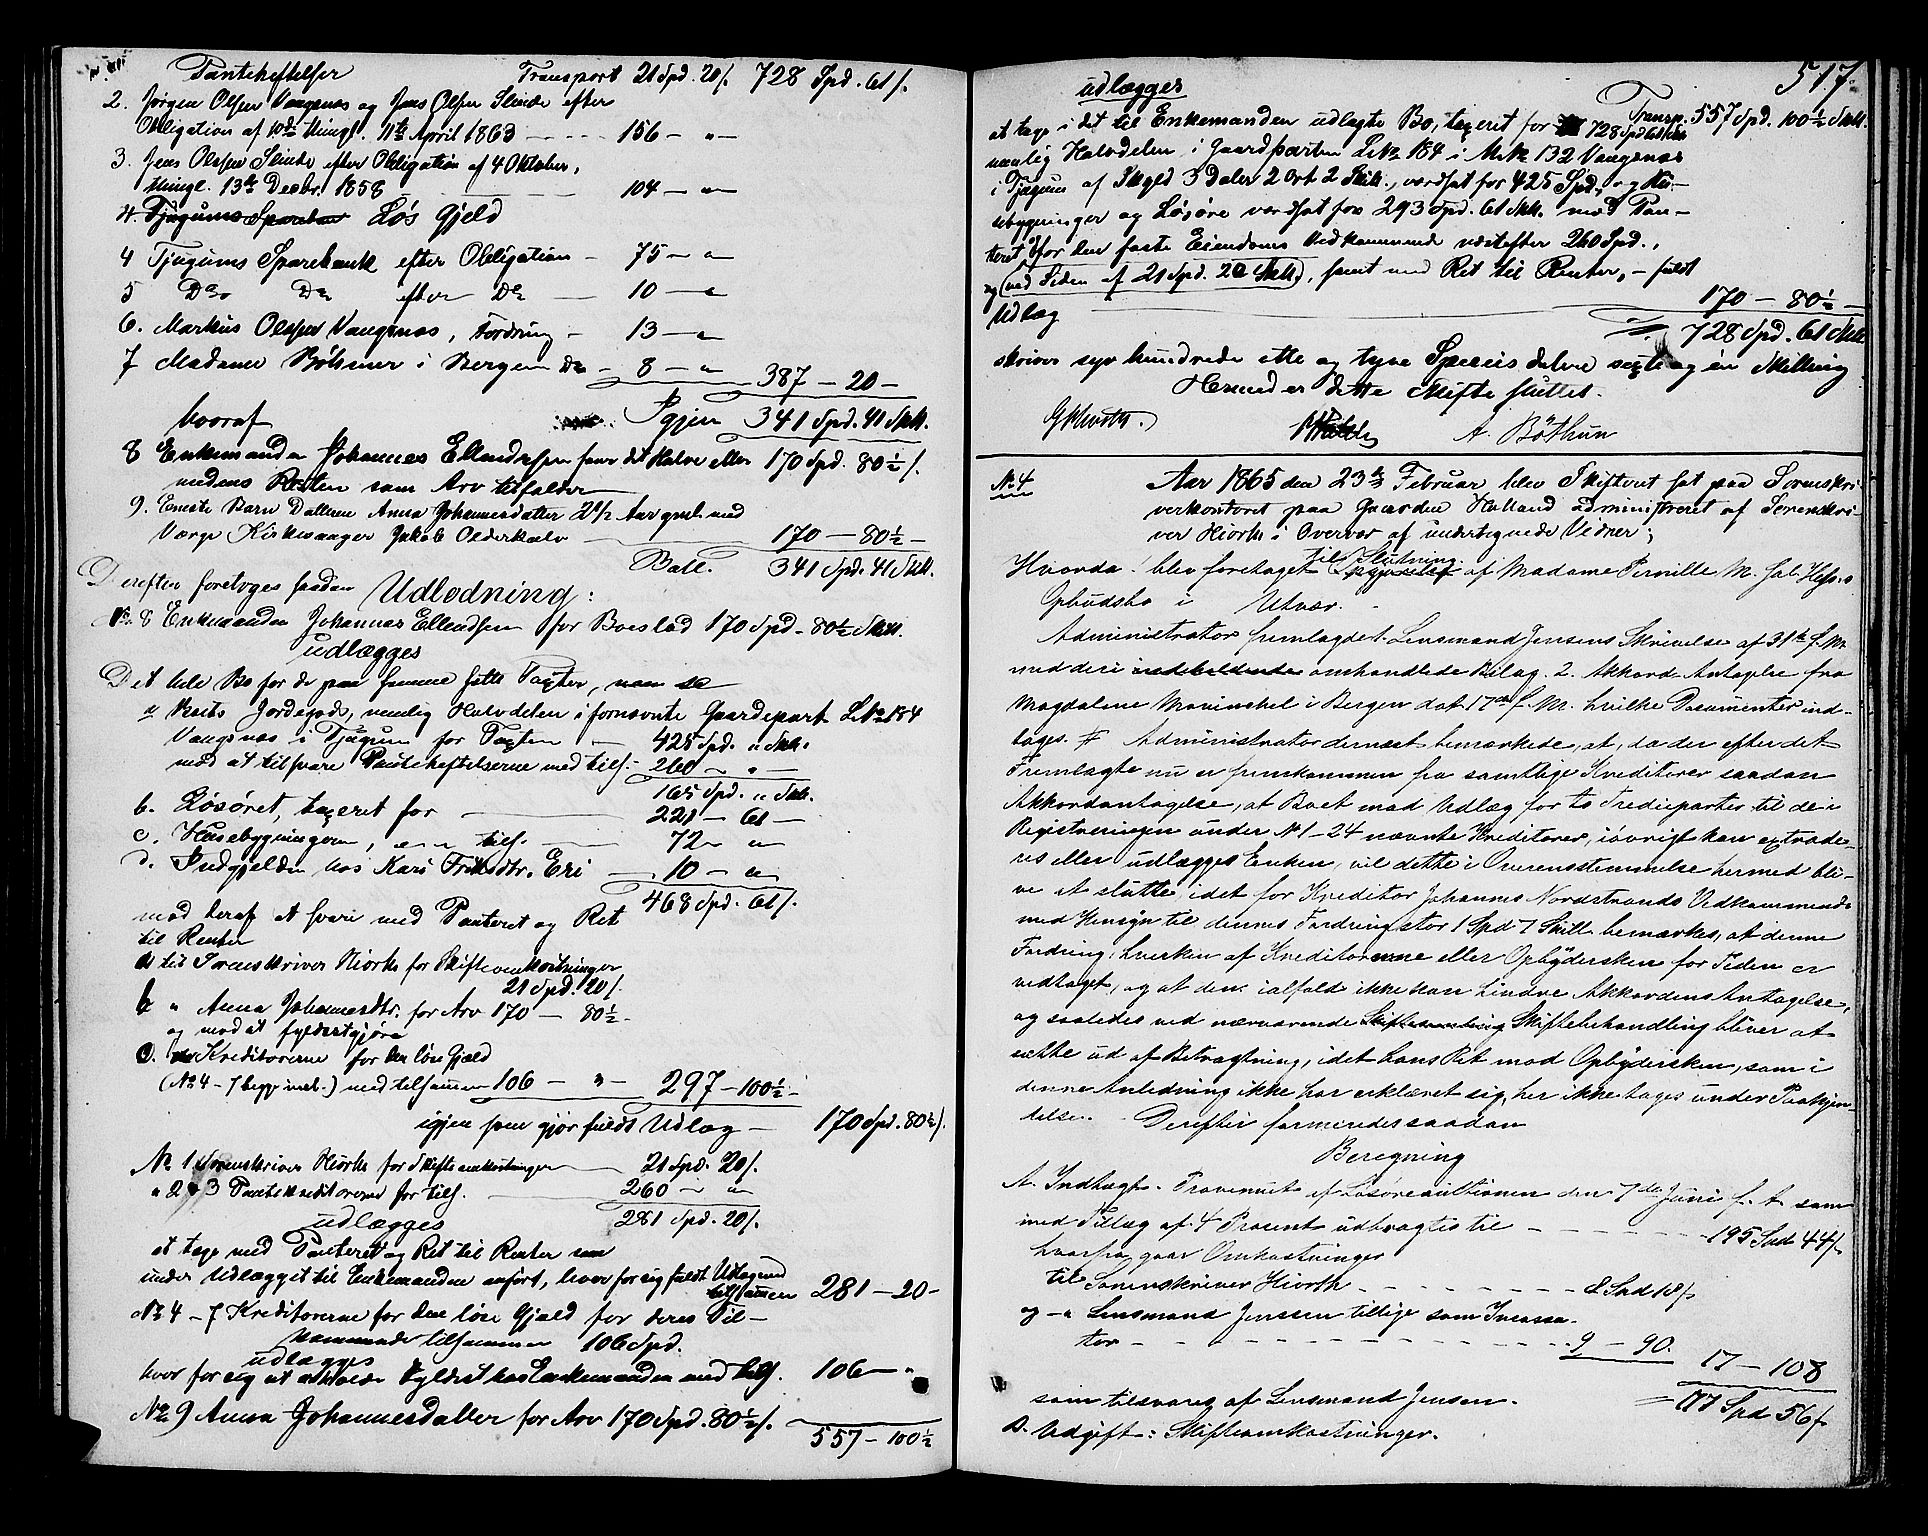 Pantehæftelser Transport 21 Spd. 20/. 728 Spd. 61/.
2. Jørgen Olssen Vangsnæs og Jens Olssen Slinde efter
Obligation af 10de thingl. 11te April 1863 - - - - 156 - " -
3. Jens Olssen Slinde efter Obligation af 4 Oktober,
thingl. 13de Decbr. 1858 104 - " -
4. Tjugums Sparebank Løs Gjeld
4 Tjugums Sparebank efter Obligation - 75 - "
5 Do Do efter Do - 10 - "
6. Markus Olssen Vangsnæs, Fordring - 13 - "
7 Madame Bøhmer i Bergen Do - 8 - " 387 - 20 -
hvoraf Igjen 341 Spd. 41 Skill.
8 Enkemanden Johannes Ellendssen faar det Halve eller 170 Spd. 80½/.
medens Resten som Arv tilfalder
9. Eneste Barn Datteren Anna Johannesdatter 2½ Aar gml. med
Værge Kirkesanger Jakob Olderkalv 170 - 80½ -
Ball. 341 Spd. 41 Skill.
Derefter foretoges saadan Udlodning:
No 8 Enkemanden Johannes Ellendssen for Boeslod 170 Spd - 80½ Skill.
udlægges
Det hele Bo for de paa samme satte Taxter, nemlig
a Boets Jordegods, nemlig Halvdelen i fornævnte Gaardepart LNo 184
Vangsnæs i Tjugum for Taxten - 425 Spd. " Skill.
mod at tilsvare Pantehæftelserne med tils. - 260 - " -
165 Spd. " Skill.
b. Løsøret, taxeret for 221 - 61 -
c. Husebygningerne, " - " tils. 72 - "
d. Indgjelden hos Kari Eriksdtr. Eri 10 - "
468 Spd. 61/.
mod deraf at svare med Panteret og Ret
til Renter
a til Sorenskriver Hiorth for Skifteomkostninger
21 Spd. 20/.
b " Anna Johannesdtr. for Arv 170 - 80½ -
og mod at fyldestgjøre
c. Kreditorerne for den løse Gjæld
(No 4 - 7 begge inkl.) med tilsammen 106 - " - 297 - 100½ -
igjen som gjør fuldt Udlæg - 170 Spd. 80½/.
No 1 Sorenskriver Hiorth for Skifteomkostninger 21 Spd. 20/.
" 2 & 3 Pantekreditorerne for tils. 260 - "
281 Spd. 20/.
udlægges
at tage med Panteret og Ret til Renter som
under Udlægget til Enkemanden anført, hver for sig fuldt Udlæg med
tilsammen 281 - 20 -
No 4 - 7 Kreditorerne for den løse Gjæld for deres Til-
kommende tilsammen 106 Spd.
udlægges
hver for sig at erholde Fyldest hos Enkemanden med tils. 106 - "
No 9 Anna Johannesdatter for Arv 170 Spd. 80½/.
557 - 100½
517.
udlægges
Transp. 557 Spd. 100½ Skill.
at tage i det til Enkemanden udlagte Bo, taxeret for 728 Spd 61 Skill
nemlig Halvdelen i Gaardparten LNo 184 i MNo 132 Vangsnæs
i Tjugum af Skyld 3 Daler 2 Ort 2 Skill., værdsat for 425 Spd, og Hu-
sebygninger og Løsøre værdsat for 293 Spd. 61 Skill. med Pan-
teret for den faste Eiendoms Vedkommende næstefter 260 Spd.,
og (ved Siden af 21 Spd. 20 Skill.), samt med Ret til Renter, - fuldt
Udlæg 170 - 80½ -
728 Spd. 61 Skill
skriver syv hundrede otte og tyve Speciesdaler sexti og én Skilling
Hermed er dette Skifte sluttet.
G Hiorth. A. Bøthun
No 4 Aar 1865 den 23de Februar blev Skifteret sat paa Sorenskri-
verkontoret paa Gaarden Halland administreret af Sorenskri-
ver Hiorth i Overvær af undertegnede Vidner;
Hvorda blev foretaget til Slutning af Madame Pernille M. sal. Heses
Opbudsbo i Utvær.
Administrator fremlagde 1. Lensmand Jensens Skrivelse af 31te f. M.
med deri indholdende omhandlede Bilag. 2. Akkord Antagelse fra
Magdalene Mowinckel i Bergen dat 17de f. M. hvilke Documenter ind-
tages. # Administrator dernæst bemærkede, at, da der efter det
Fremlagte nu er fremkommen fra samtlige Kreditorer saadan
Akkordantagelse, at Boet mod Udlæg for to Trediparter til de i
Registreringen under No 1 - 24 nævnte Kreditorer, iøvrigt kan extrade-
res eller udlægges Enken, vil dette i Overensstemmelse hermed bli-
ve at slutte, idet for Kreditor Johannes Nordstrands Vedkommende
med Hensyn til dennes Fordring stor 1 Spd 7 Skill bemærkes, at denne
Fordring hverken af Kreditorerne eller Opbydersken for Tiden er
vedtaget, og at den ialfald ikke kan hindre Akkordens Antagelse,
og saaledes ved nærværende Skiftesamling Skiftebehandling bliver at
sætte ud af Betragtning, idet hans Ret mod Opbydersken, som i
denne Anledning ikke har erklæret sig, her ikke tages under Paakjen-
delse. Derefter formeredes saadan
Beregning
A. Indtægt. Provenuet af Løsøreauktionen den 7de Juni f. A. som
med Tillæg af 4 Prosent udbragtes til - - - - - 195 Spd 44/.
hvorfra gaar Omkostninger
til Sorenskriver Hiorth - - - - - - 8 Spd 18/.
og - " Lensmand Jenssen tillige som Incassa-
tor - - - - - - - - - 9 - 90.
17 - 108
som tilsvares af Lensmand Jensen. = 177 Spd 56/.
B. Udgift: Skifteomkostninger.